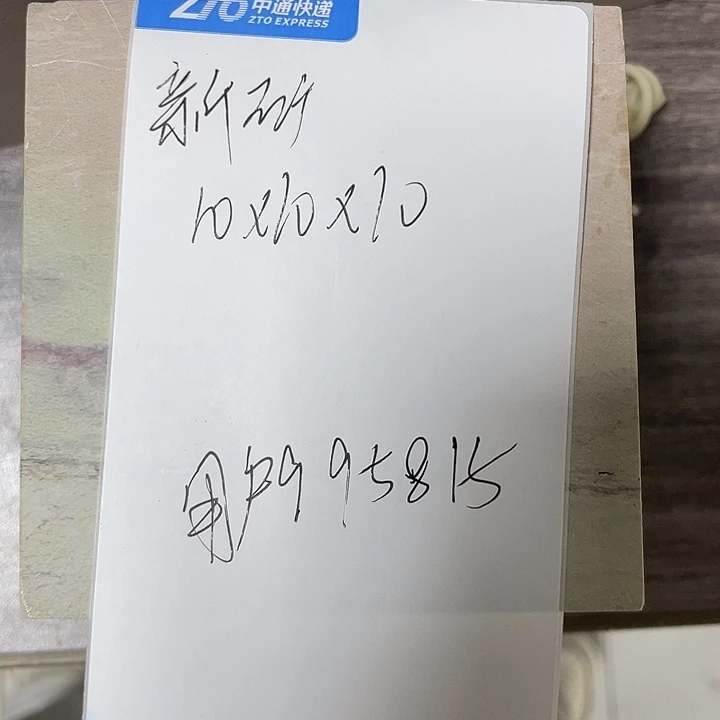 ZTO 中通快递
ZTO EXPRESS
新矿
10x10x10
用户995815